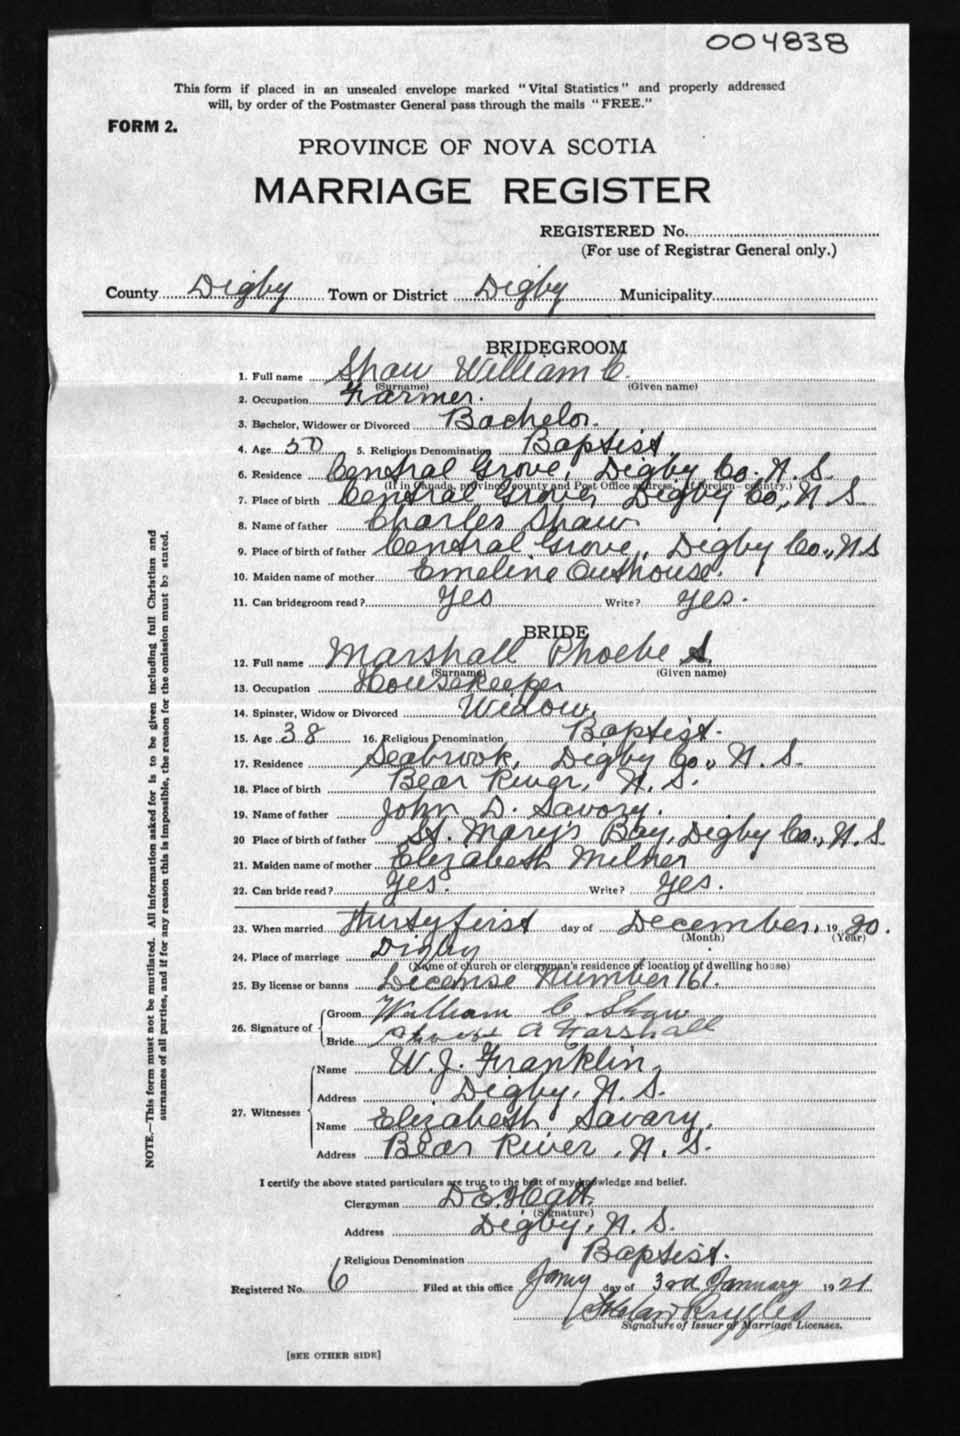 004838
This form if placed in an unsealed envelope marked "Vital Statistics" and properly addressed
will, by order of the Postmaster General pass through the mails "FREE."
FORM 2.
PROVINCE OF NOVA SCOTIA
MARRIAGE REGISTER
REGISTERED No.
(For use of Registrar General only.)
County Digby Town or District Digby Municipality
BRIDEGROOM
1. Full name Shaw William C.
(Surname) (Given name)
2. Occupation Farmer.
3. Bachelor, Widower or Divorced Bachelor.
4. Age 50 5. Religious Denomination Baptist.
6. Residence Central Grove, Digby Co. N. S.
(If in Canada, province, county and Post Office address. If foreign—country.)
7. Place of birth Central Grove, Digby Co., N. S.
8. Name of father Charles Shaw
9. Place of birth of father Central Grove, Digby Co., N S
10. Maiden name of mother Emeline Outhouse.
11. Can bridegroom read? Yes Write? Yes.
BRIDE
12. Full name Marshall Phoebe A.
(Surname) (Given name)
13. Occupation Housekeeper
14. Spinster, Widow or Divorced Widow.
15. Age 38 16. Religious Denomination Baptist.
17. Residence Seabrook, Digby Co., N. S.
18. Place of birth Bear River, N. S.
19. Name of father John D. Savory.
20 Place of birth of father St. Mary's Bay, Digby Co., N. S
21. Maiden name of mother Elizabeth Milner
22. Can bride read? Yes. Write? Yes.
23. When married Thirty first day of December, 1920.
(Month) (Year)
24. Place of marriage Digby
(Name of church or clergyman's residence or location of dwelling house)
25. By license or banns License Number 161.
26. Signature of Groom William C Shaw
Bride A Marshall
27. Witnesses Name W. J. Franklin,
Address Digby, N. S.
Name Elizabeth Savary,
Address Bear River, N. S.
I certify the above stated particulars are true to the best of my knowledge and belief.
Clergyman D E. Hatt.
(Signature)
Address Digby, N. S.
Religious Denomination Baptist.
Registered No. 6 Filed at this office day of 3rd January 1921
Ruggles
Signature of Issuer of Marriage Licenses.
[SEE OTHER SIDE]
NOTE.—This form must not be mutilated. All information asked for is to be given including full Christian and
surnames of all parties, and if for any reason this is impossible, the reason for the omission must be stated.